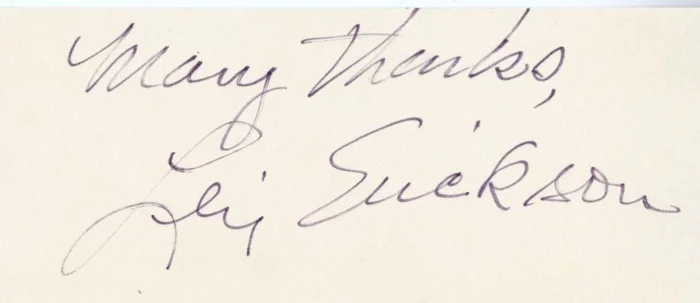 Many thanks,
Leif Erickson